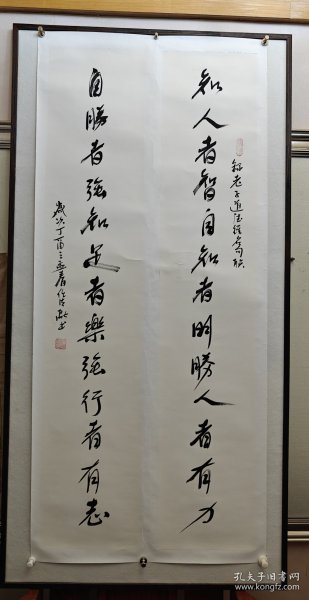 知人者智自知者明勝人者有力
錄老子道德經句联
自勝者強知足者樂強行者有志
歲次丁酉之
书
孔夫子旧书网